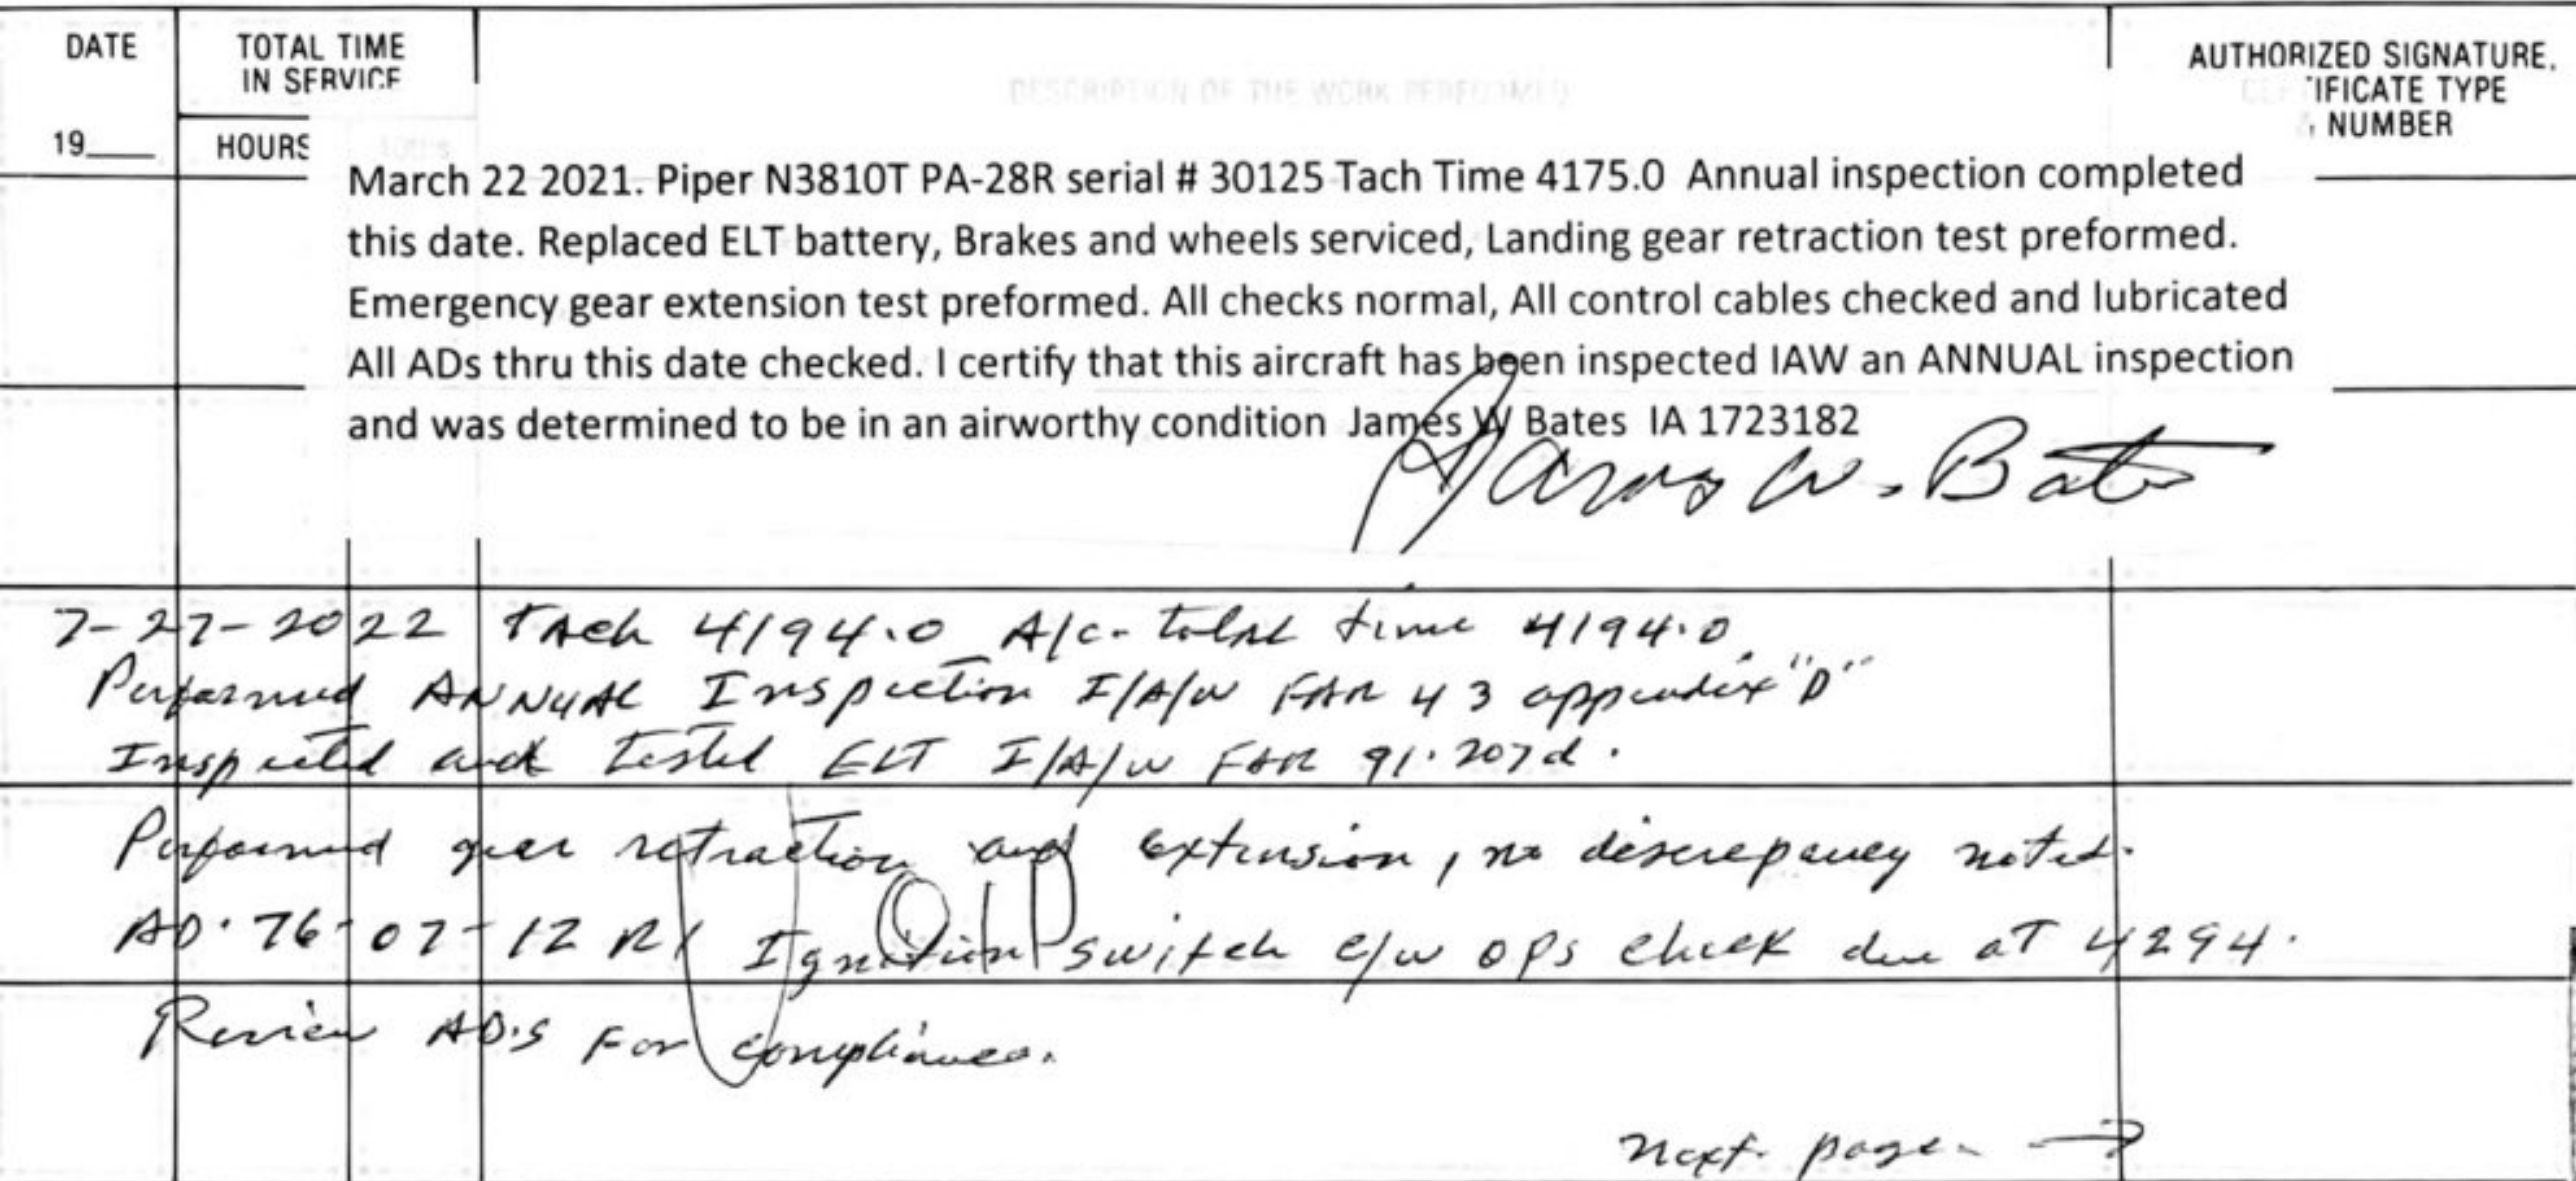 DATE
TOTAL TIME
IN SERVICE
DESCRIPTION OF THE WORK PERFORMED
AUTHORIZED SIGNATURE,
CERTIFICATE TYPE
& NUMBER
19
HOURS
10ths
March 22 2021. Piper N3810T PA-28R serial # 30125 Tach Time 4175.0 Annual inspection completed
this date. Replaced ELT battery, Brakes and wheels serviced, Landing gear retraction test preformed.
Emergency gear extension test preformed. All checks normal, All control cables checked and lubricated
All ADs thru this date checked. I certify that this aircraft has been inspected IAW an ANNUAL inspection
and was determined to be in an airworthy condition James W Bates IA 1723182
James W. Bates
7-27-2022 Tach 4194.0 A/C- total time 4194.0
Performed ANNUAL Inspection I/A/W FAR 43 appendix "D"
Inspected and tested ELT I/A/W FAR 91.207d.
Performed gear retraction and extension, no discrepancy noted.
AD. 76-07-12 R1 Ignition switch c/w ops check due at 4294.
Review AD.S For compliances.
next page →